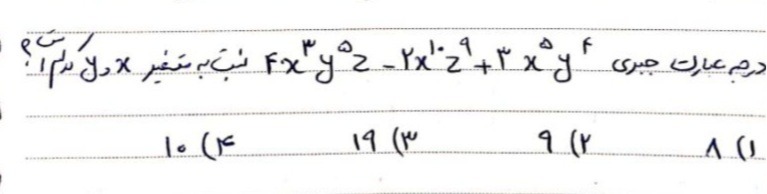 درجه عبارت جبری ۴x³y⁵z - ۲x¹⁰z⁹ + ۳x⁵y⁴ نسبت به متغیر x و y کدام است؟
۱) ۸ ۲) ۹ ۳) ۱۹ ۴) ۱۰